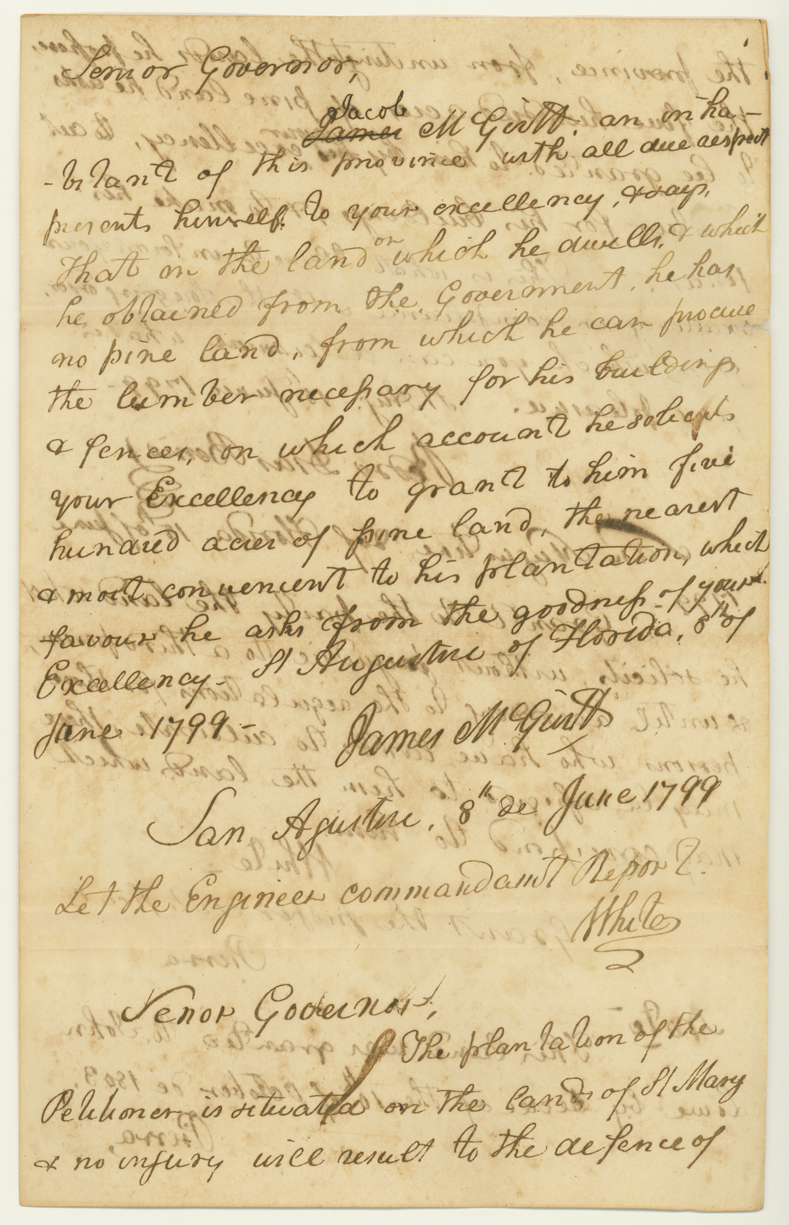 Senior Governor,
Jacob
James McGirtt. an inha-
-bitant of this province with all due respect
presents himself. to your excellency, & says,
That on the land on which he dwells, & which
he obtained from the Government, he has
no pine land, from which he can procure
the lumber necessary for his buildings
& fences, on which account he solicits
your Excellency to grant to him five
hundred acres of pine land, the nearest
& most convenient to his plantation, which
favour he asks from the goodness of your
Excellency - St Augustine of Florida, 8th of
June 1799 -
James McGirtt
San Agustin, 8th de June 1799
Let the Engineer commandant Report.
White
Senor Governor,
The plantation of the
Petitioner is situated on the lands of St Mary
& no injury will result to the defence of